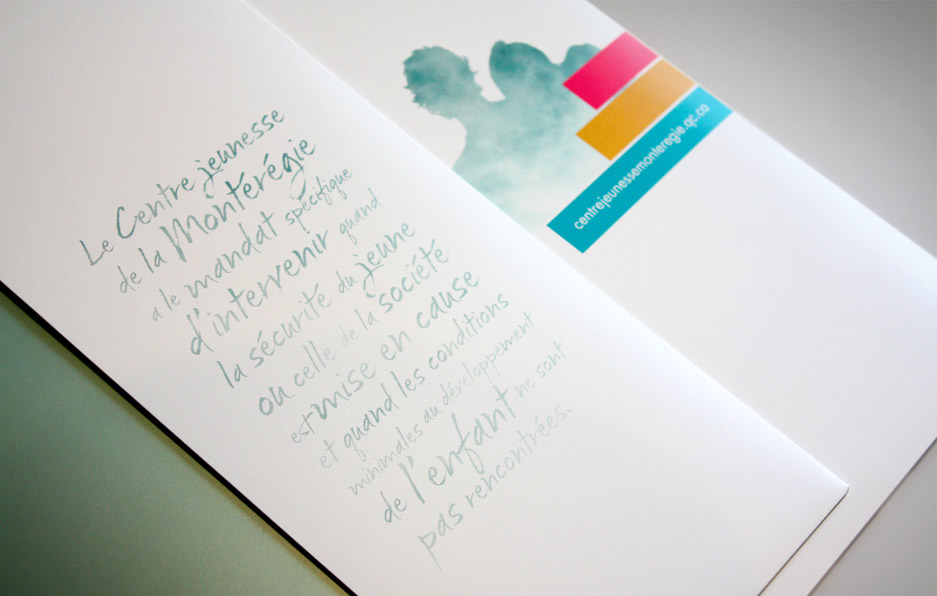 Le Centre jeunesse
de la Montérégie
a le mandat spécifique
d'intervenir quand
la sécurité du jeune
ou celle de la société
est mise en cause
et quand les conditions
minimales au développement
de l'enfant ne sont
pas rencontrées.
centrejeunessemonteregie.qc.ca